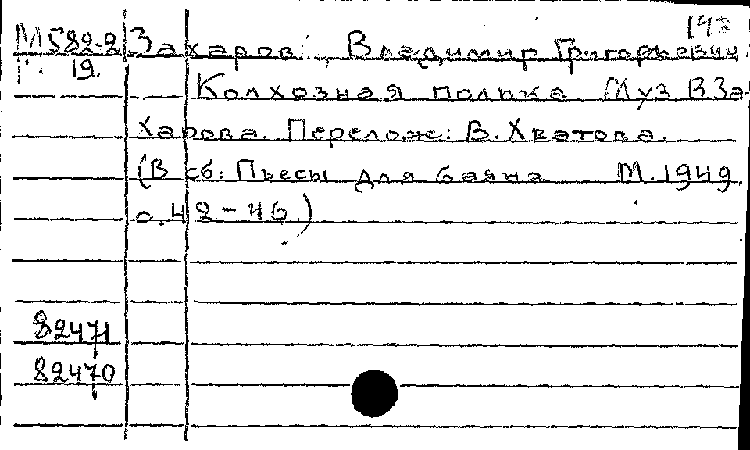 143
М582-2 Захаров, Владимир Григорьевич
г. 19. Колхозная полька Муз В За-
харова. Перелож: В. Хватова.
(В сб: Пьесы для баяна М. 1949
с. 42-46)
82471
82470